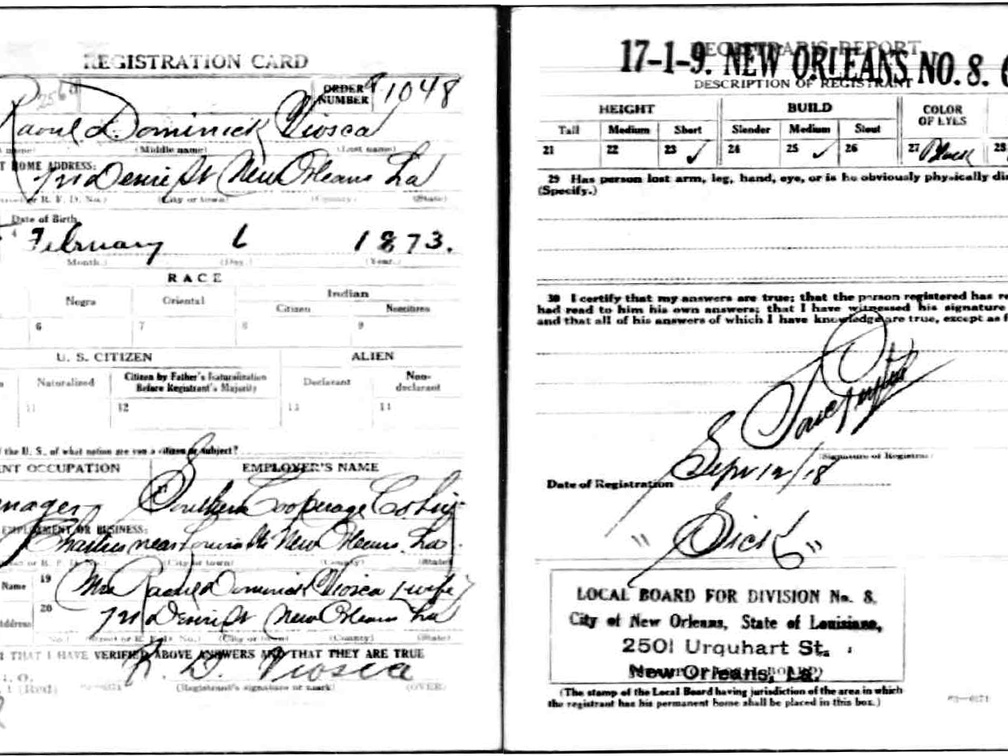 REGISTRATION CARD
ORDER NUMBER 1048
Raoul Dominick Viosca
(Middle name) (Last name)
HOME ADDRESS:
Desire St New Orleans La
(City or town) (County) (State)
Date of Birth
February 6 1873.
Month. (Day.) (Year.)
RACE
Negro Oriental Indian
Citizen Noncitizen
6 7 8 9
U. S. CITIZEN ALIEN
Naturalized Citizen by Father's Naturalization Before Registrant's Majority Declarant Non-declarant
11 12 13 14
the U. S., of what nation are you a citizen or subject?
OCCUPATION EMPLOYER'S NAME
Southern Cooperage Co
OR BUSINESS:
near New Orleans La
(City or town) (County) (State)
Name 19 Mrs Raoul Dominick Viosca (wife)
20 Desire St New Orleans La
(City or town) (County) (State)
THAT I HAVE VERIFIED ABOVE ANSWERS AND THAT THEY ARE TRUE
R. D. Viosca
(Registrant's signature or mark) (OVER)
REGISTRAR'S REPORT
17-1-9. NEW ORLEANS, NO. 8.
DESCRIPTION OF REGISTRANT
HEIGHT BUILD COLOR OF EYES
Tall Medium Short Slender Medium Stout
21 22 23 ✓ 24 25 ✓ 26 27 Black 28
29 Has person lost arm, leg, hand, eye, or is he obviously physically
(Specify.)
30 I certify that my answers are true; that the person registered has
had read to him his own answers; that I have witnessed his signature
and that all of his answers of which I have knowledge are true, except as
(Signature of Registrar)
Date of Registration Sept 12/18
"Sick"
LOCAL BOARD FOR DIVISION No. 8,
City of New Orleans, State of Louisiana,
2501 Urquhart St.
New Orleans, La.
(The stamp of the Local Board having jurisdiction of the area in which
the registrant has his permanent home shall be placed in this box.)